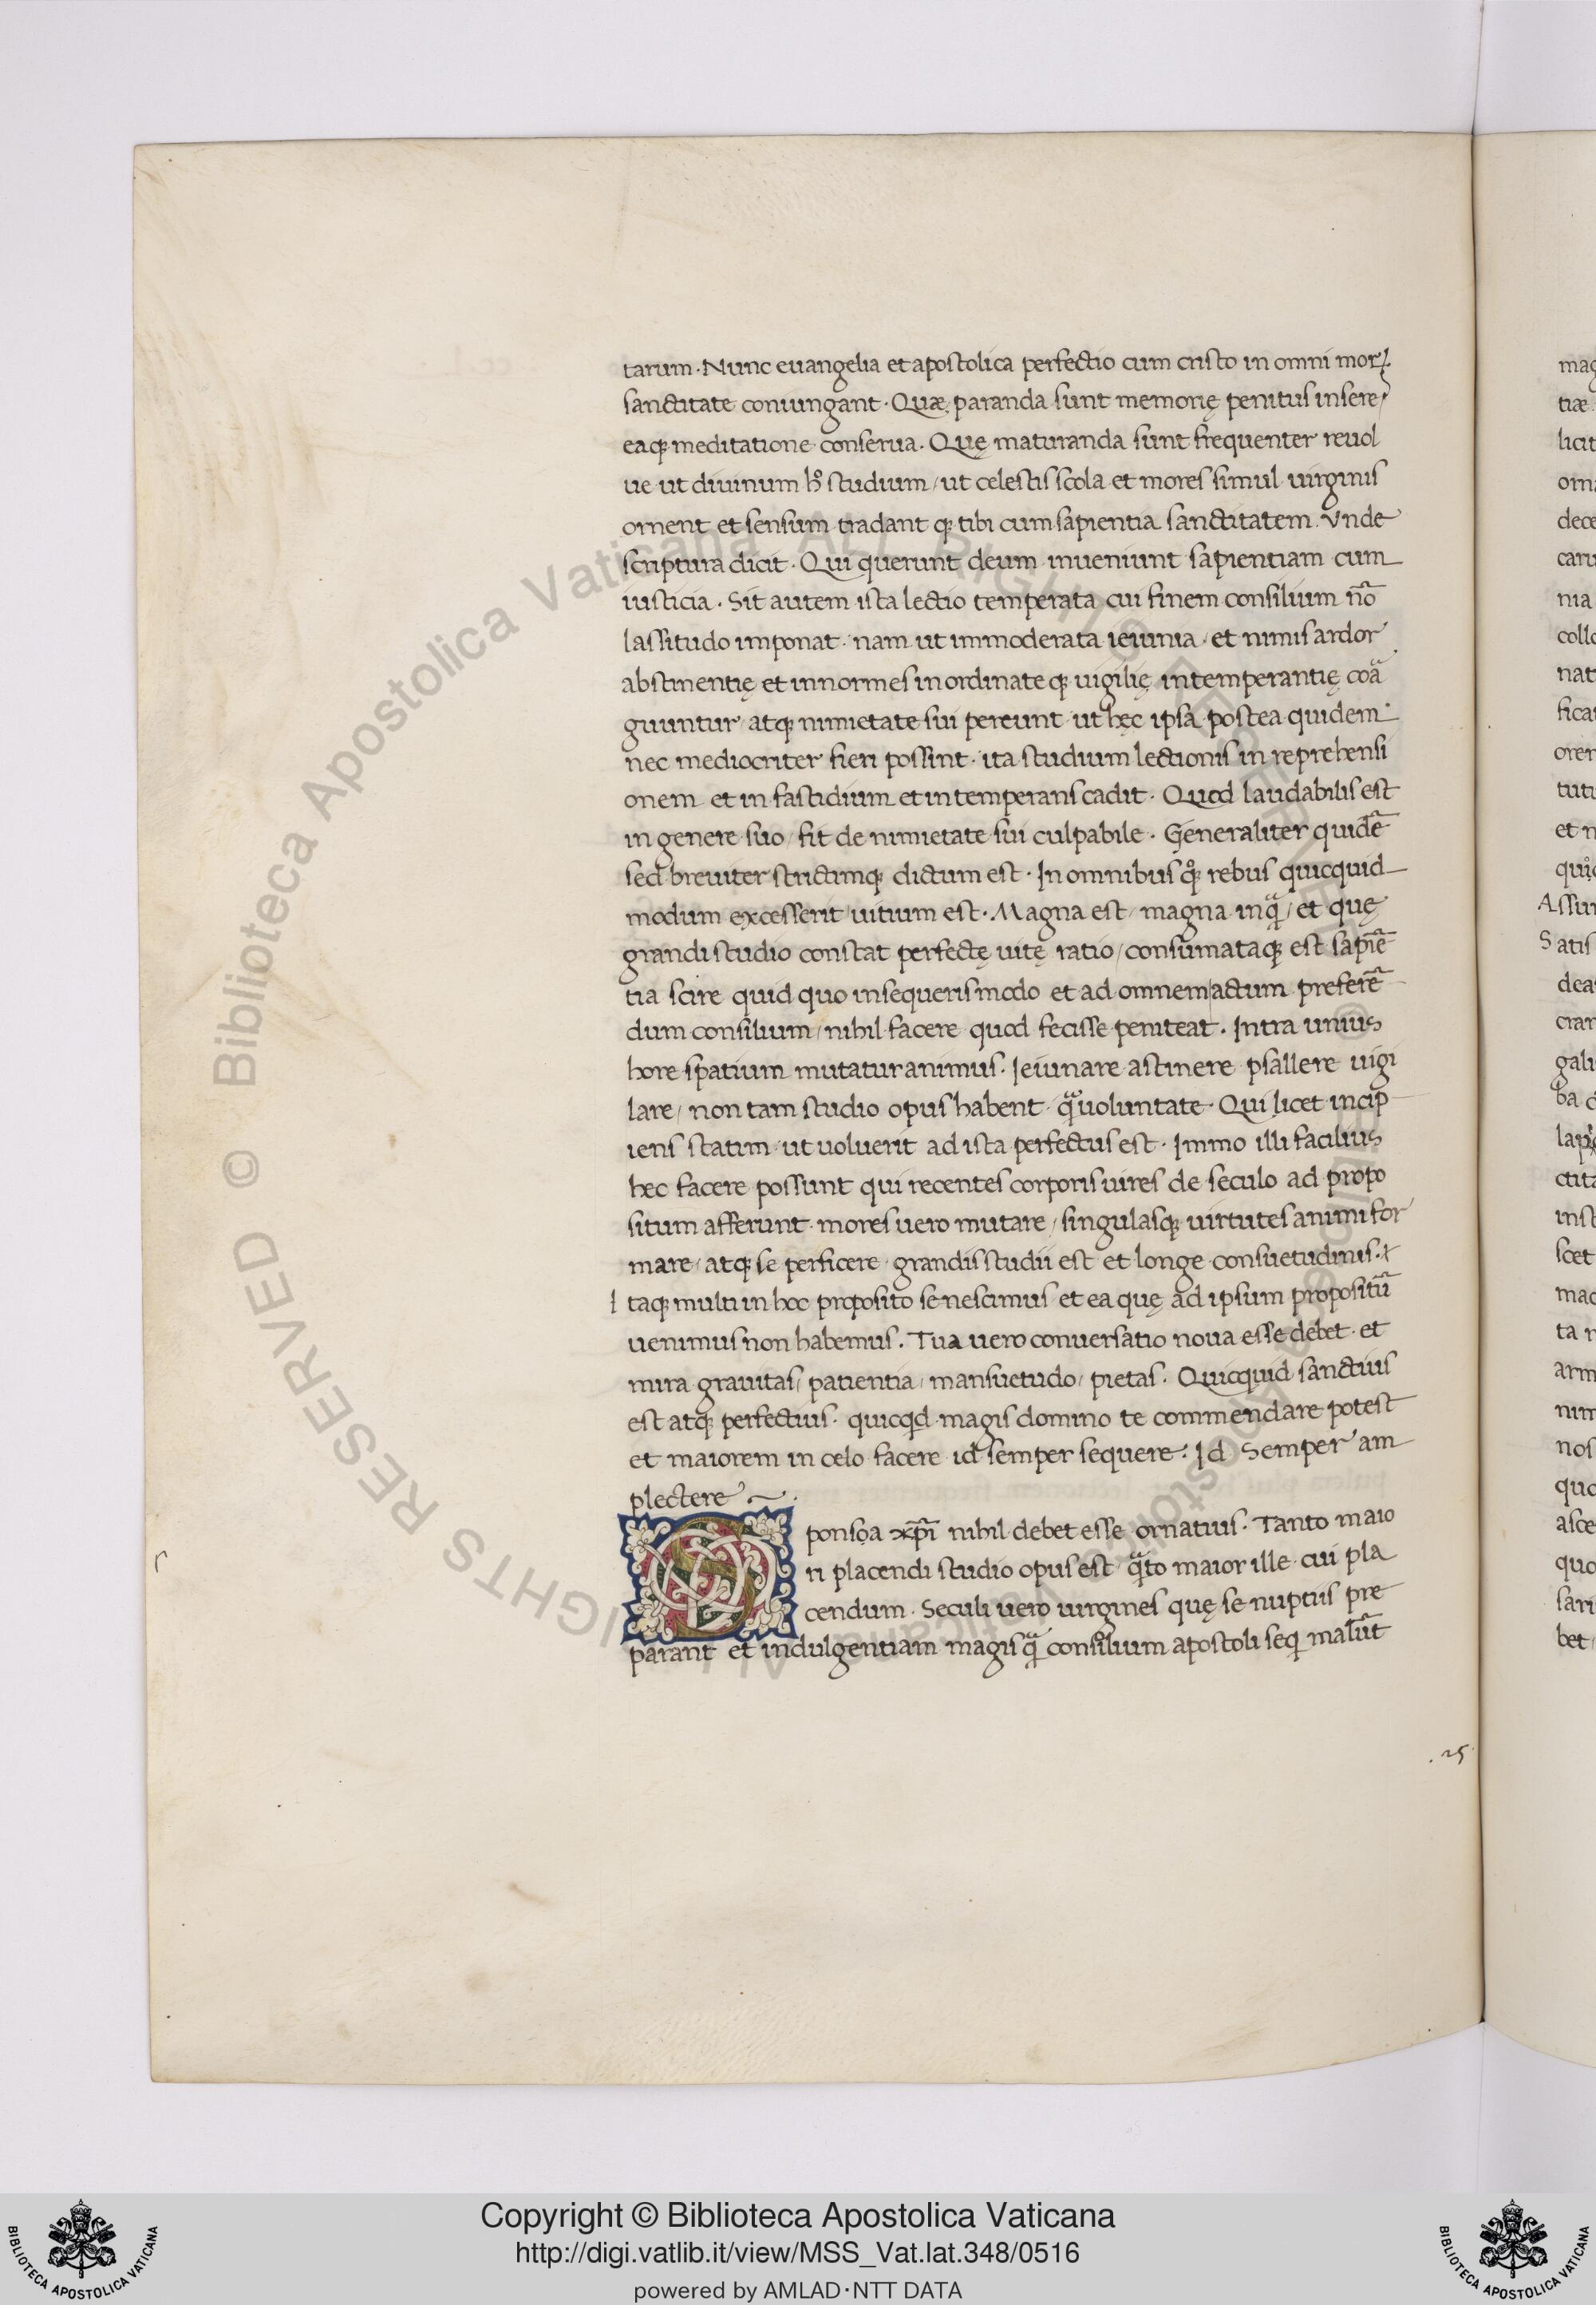 tarum · Nunc euangelia et apostolica perfectio cum cristo in omni morꝝ
sanctitate coniungant · Quæ paranda sunt memorię penitus insere
eaqꝫ meditatione conserua . Quę maturanda sunt frequenter reuol
ue ut diuinum h° studium / ut celestis scola et mores simul uirginis
ornent et sensum tradant qꝫ tibi cum sapientia sanctitatem . Vnde
scriptura dicit . Qui querunt deum inueniunt sapientiam cum
iusticia . Sit autem ista lectio temperata cui finem consilium nō
lassitudo imponat · nam ut immoderata ieiunia / et nimis ardor
abstinentię et innormes inordinate qꝫ uigilię intemperantię coā
guuntur / atqꝫ nimietate sui pereunt ut hęc ipsa postea quidem
nec mediocriter fieri possint · ita studium lectionis in reprehensi
onem et in fastidium et intemperans cadit . Quod laudabilis est
in genere suo / fit de nimietate sui culpabile . Generaliter quidē
sed breuiter strictimqꝫ dictum est · In omnibus qꝫ° rebus quicquid
modum excesserit uitium est . Magna est / magna inqᷓ / et quę
grandi studio constat perfectę uitę ratio / consūmataqꝫ est sapiē
tia scire quid quo insequeris modo et ad omnem actum preferē
dum consilium / nihil facere quod fecisse peniteat . Intra unius
hore spatium mutatur animus . Ieiunare astinere psallere uigi
lare / non tam studio opus habent qᷓ uoluntate . Qui licet incip
iens statim ut uoluerit ad ista perfectus est . Immo illi facilius
hec facere possunt qui recentes corporis uires de seculo ad propo
situm afferunt · mores uero mutare / singulasqꝫ uirtutes animi for
mare / atqꝫ se perficere grandis studii est et longe consuetudinis .
I taqꝫ multi in hoc proposito senescimus et ea quę ad ipsum propositū
uenimus non habemus . Tua uero conuersatio noua esse debet · et
mira grauitas / patientia / mansuetudo / pietas . Quicquid sanctius
est atqꝫ perfectius . quicqd magis domino te commendare potest
et maiorem in celo facere id semper sequere . Id Semper am
plectere
S ponsoa xp̄i nihil debet esse ornatius . Tanto maio
ri placendi studio opus est qᷓto maior ille cui pla
cendum . Seculi uero uirgines quę se nuptiis pre
parant et indulgentiam magis qᷓ consilium apostoli seqi malūt
. 25
mag
tiæ
licit
orna
dece
caru
nia
collo
nat
fica
orer
tuti
et n
quid
Assur
Satis
dea
crar
gali
ba
lap
ctita
inst
scet
mac
ta
arm
nim
nos
quo
asce
quo
sari
bet
© Biblioteca Apostolica Vaticana ALL RIGHTS RESERVED © Biblioteca Apostolica Vaticana ALL RIGHTS RESERVED
Copyright © Biblioteca Apostolica Vaticana
http://digi.vatlib.it/view/MSS_Vat.lat.348/0516
powered by AMLAD·NTT DATA
BIBLIOTECA APOSTOLICA VATICANA
BIBLIOTECA APOSTOLICA VATICANA